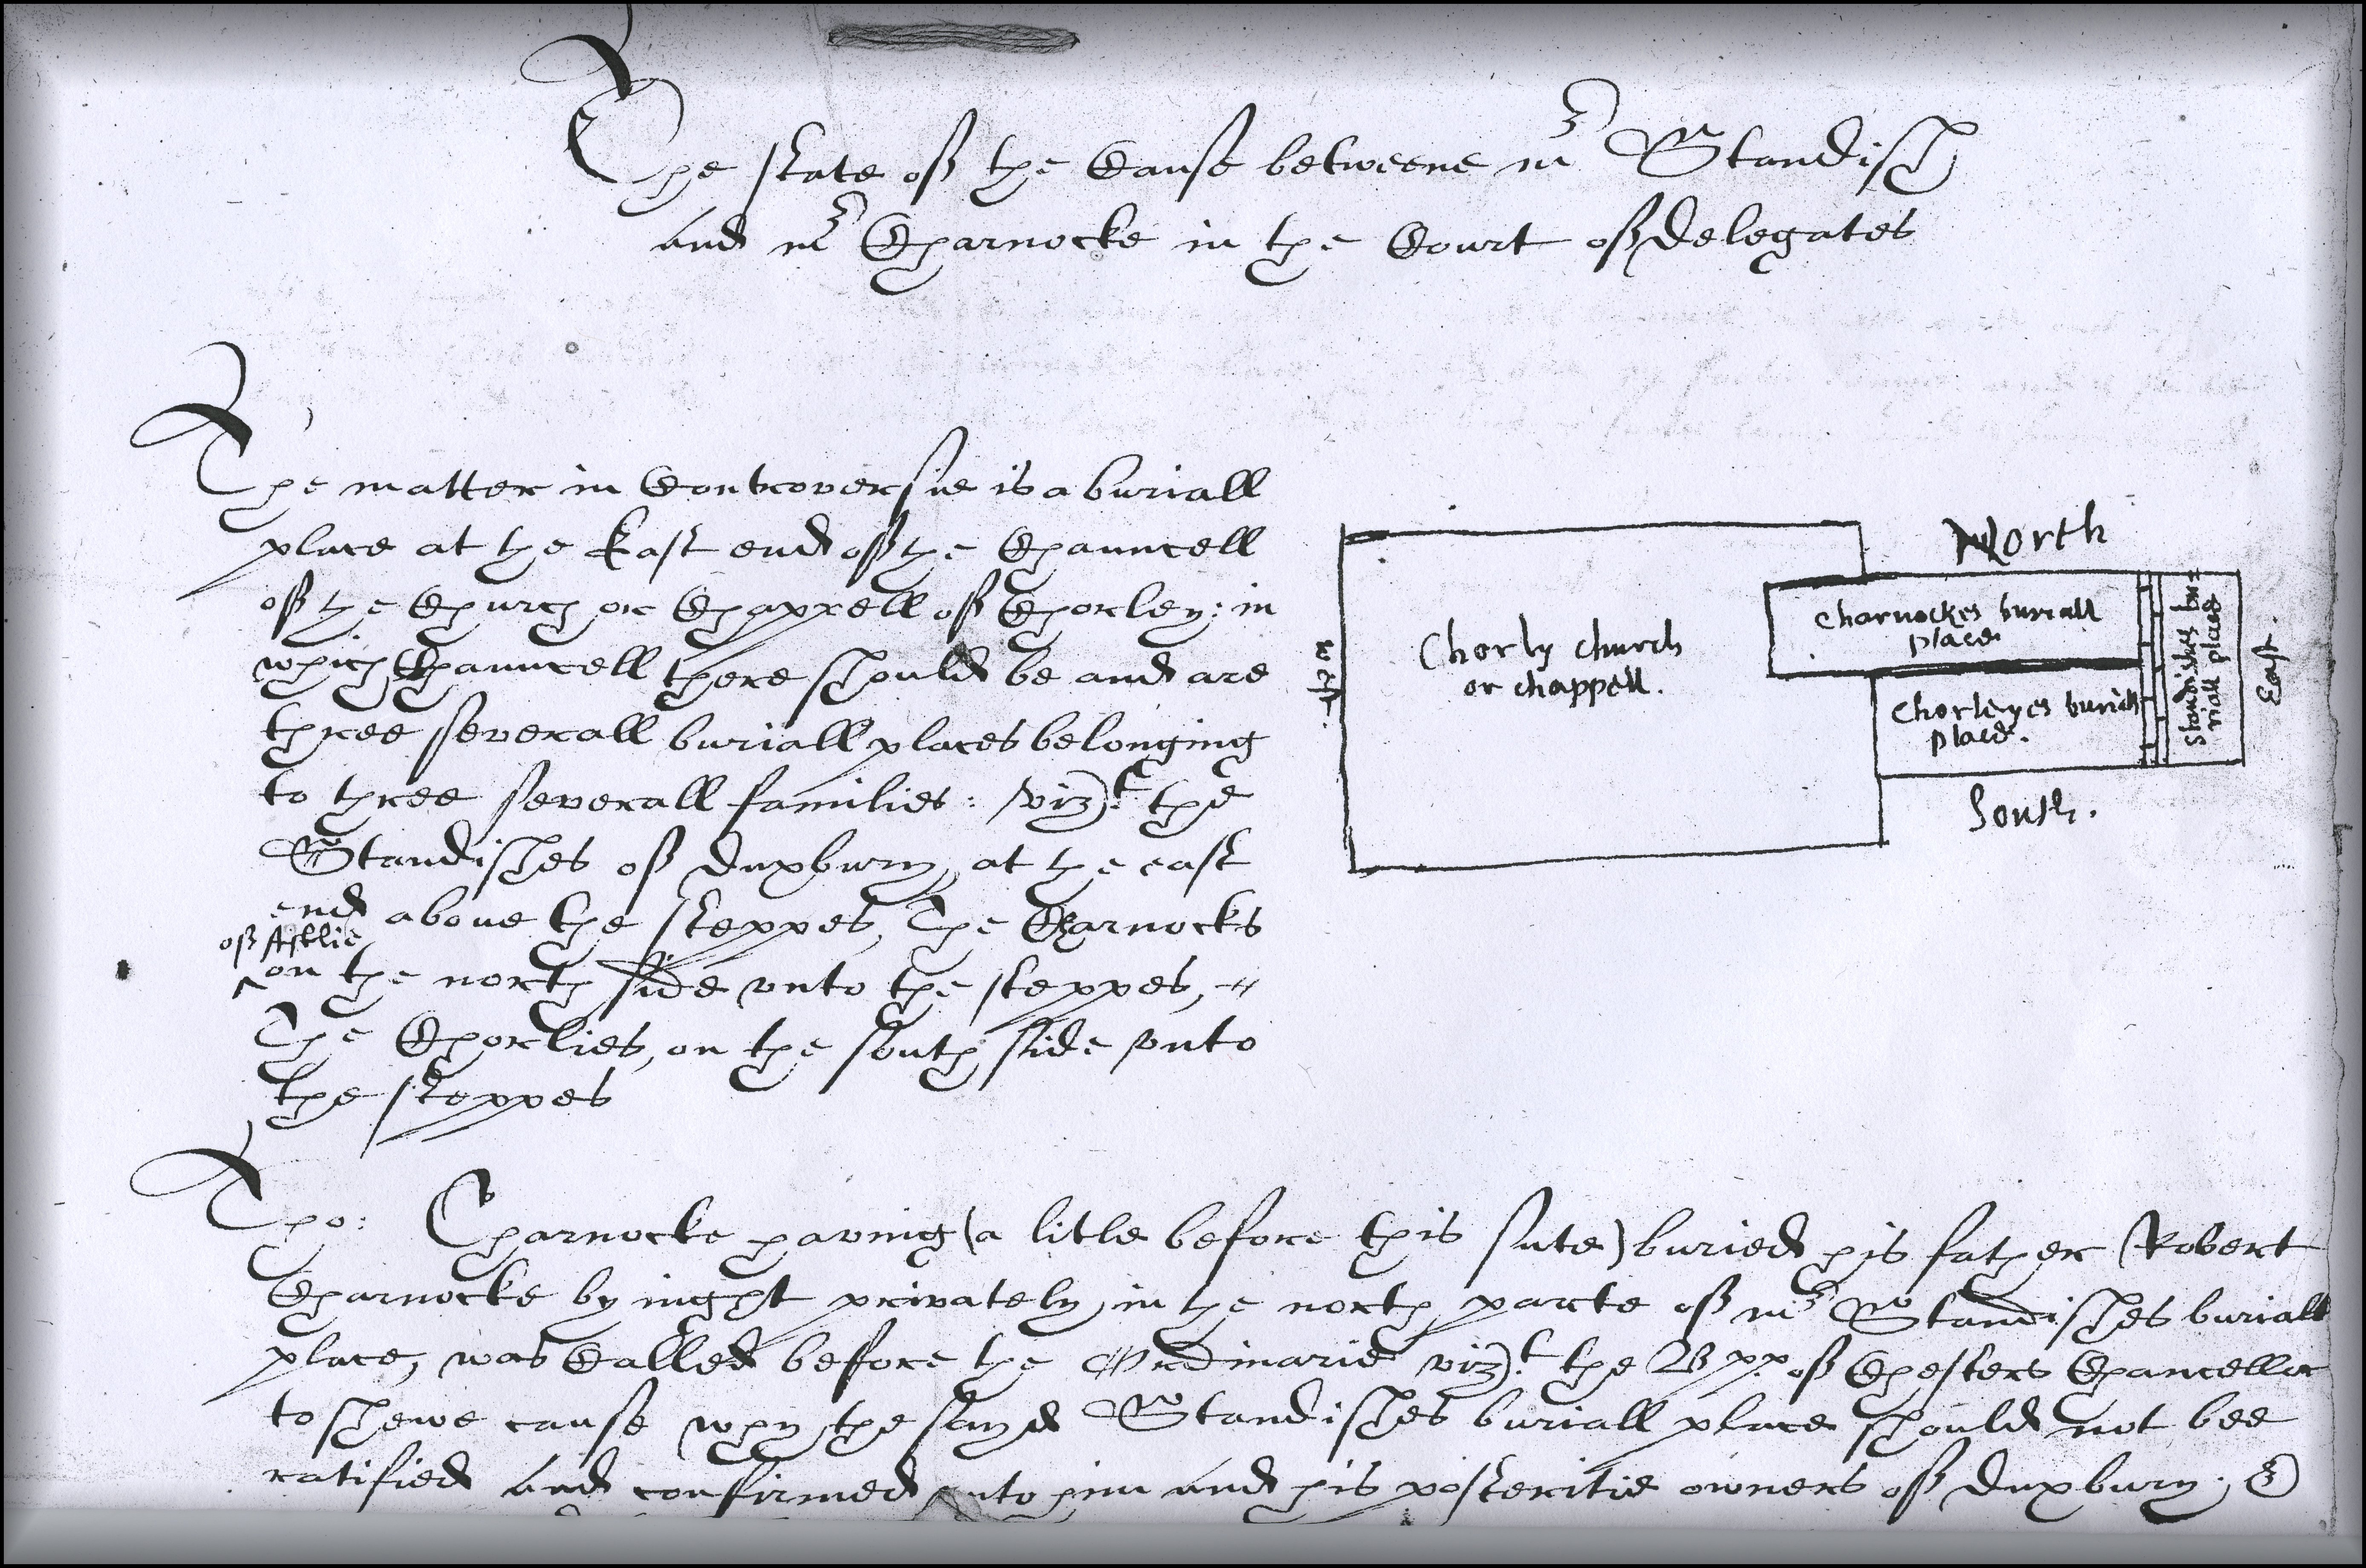 The state of the Cause betweene mr Standish
and mr Charnocke in the Court of delegates
The matter in Controversie is a buriall
place at the East end of the Chauncell
of the Church or Chappell of Chorley: in
which Chauncell there should be and are
three severall buriall places belonging
to three severall families: vizt. the
Standishes of duxbury, at the east
end above the steppes, The Charnocks
of Astlie
on the north side vnto the steppes,
The Chorlies, on the south side vnto
the steppes
North
Chorly church
or chappell.
West.
Charnockes buriall
place
Chorleyes buriall
place.
Standishes bu=
riall place
East.
South.
Tho: Charnocke having (a litle before this sute) buried his father Robert
Charnocke by night privately, in the north parte of mr Standishes buriall
place, was Called before the Ordinarie vizt. the Bpp. of Chesters Chancellor
to shewe cause why the sayd Standishes buriall place should not bee
ratified and confirmed vnto him and his posteritie owners of duxbury; &